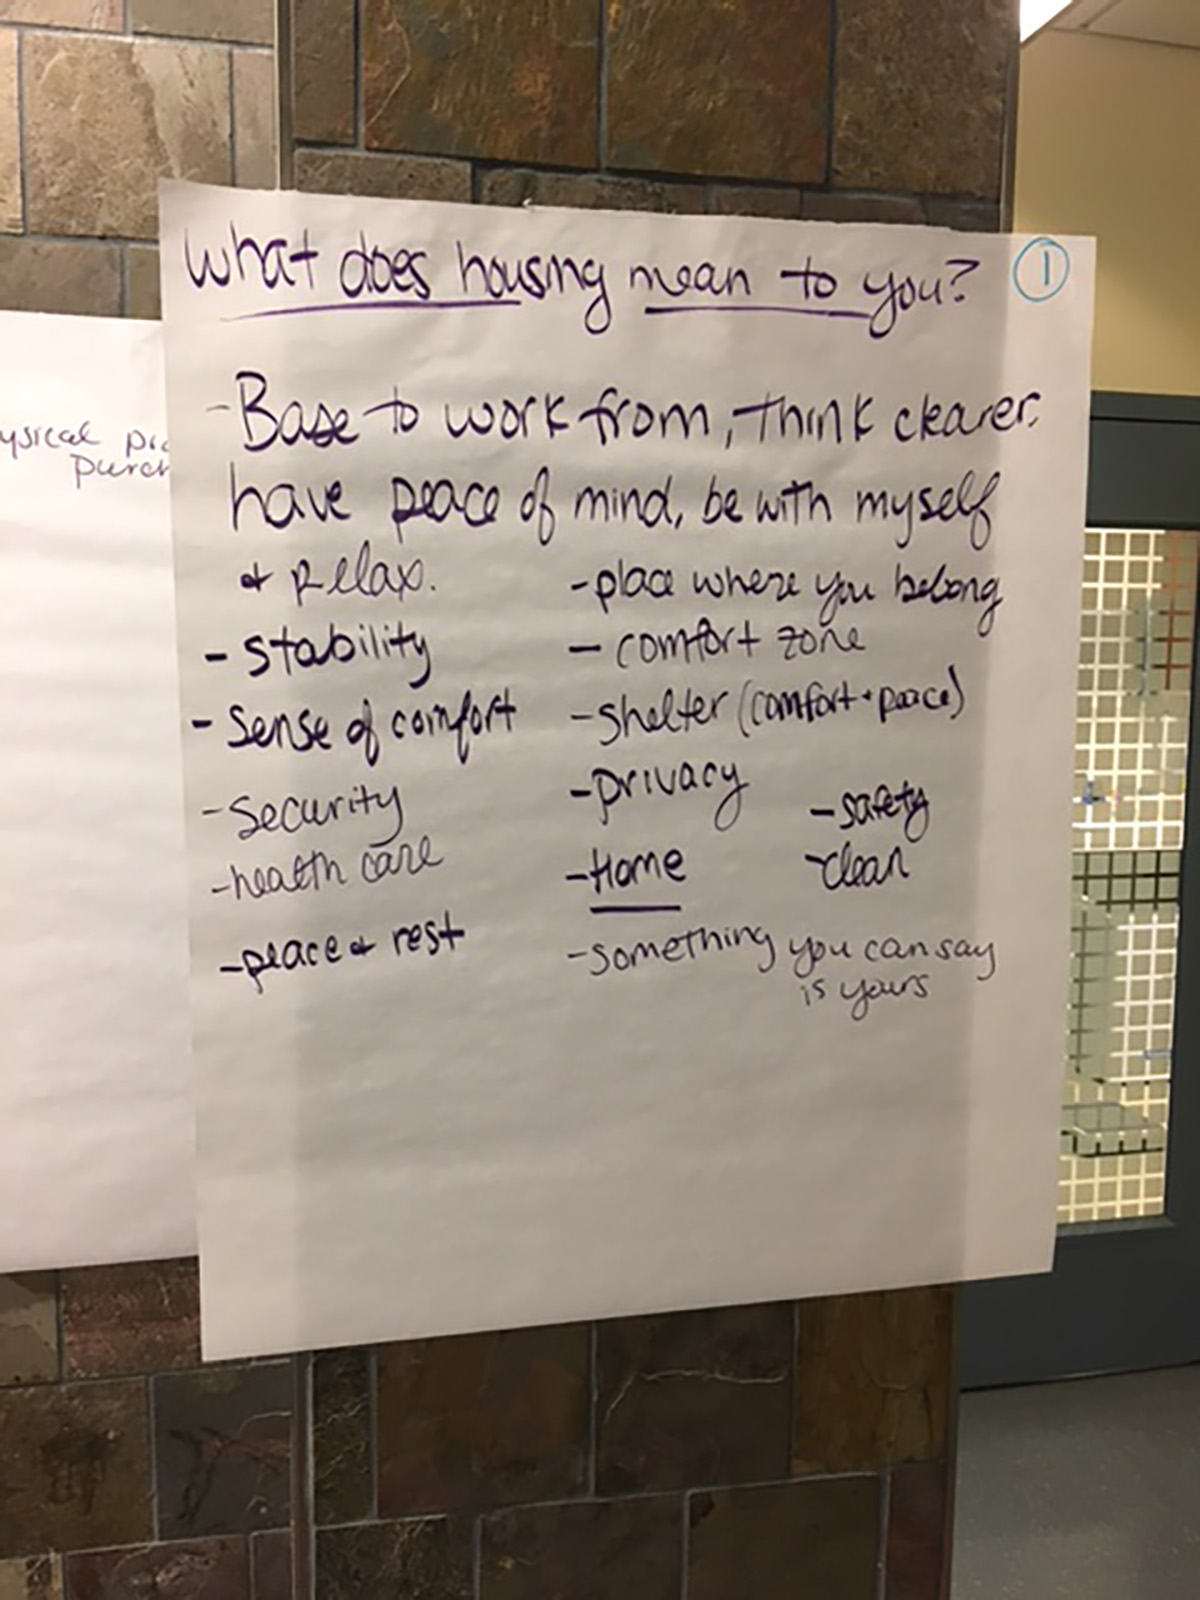 What does housing mean to you?
1
- Base to work from, think clearer,
have peace of mind, be with myself
& relax.
- stability
- sense of comfort
- security
- health care
- peace & rest
- place where you belong
- comfort zone
- shelter (comfort + peace)
- privacy
- Home
- safety
- clean
- something you can say
is yours